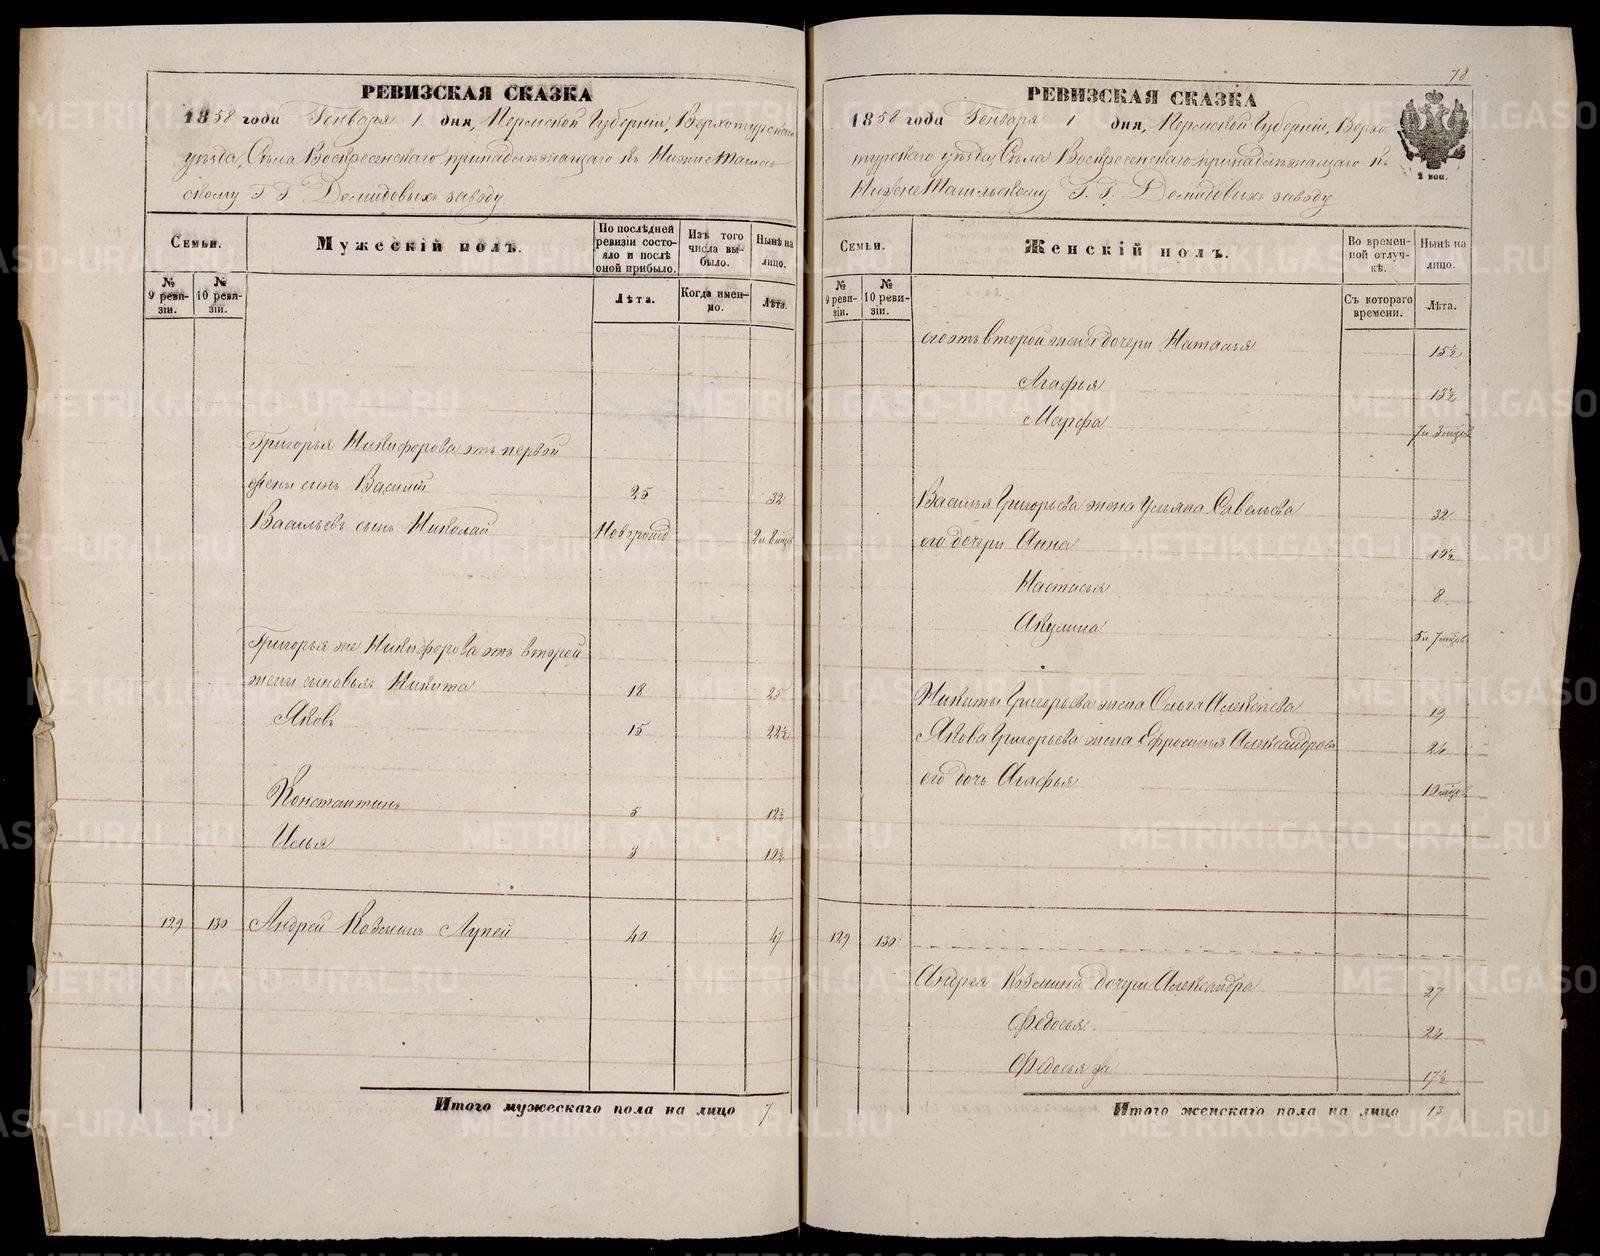 РЕВИЗСКАЯ СКАЗКА
1858 года Генваря 1 дня, Пермской Губерніи, Верхотурскаго
уѣзда, Села Воскресенскаго принадлежащаго къ Нижнетагиль-
скому Г. Г. Демидовыхъ заводу
Семьи.
Мужескій полъ.
По послѣдней ревизіи состояло и послѣ оной прибыло.
Изъ того числа выбыло.
Нынѣ на лицо.
№ 9 ревизіи.
№ 10 ревизіи.
Лѣта.
Когда именно.
Лѣта.
Григорья Никифорова отъ первой
жены сынъ Василій 25 32
Васильевъ сынъ Николай Новорожд 2 и 8 мѣсцов
Григорья же Никифорова отъ второй
жены сыновья Никита 18 25
Яковъ 15 22½
Константинъ 5 12½
Илья 3 10½
129 130 Андрей Козминъ Лупей 40 47
Итого мужескаго пола на лицо 7
78
РЕВИЗСКАЯ СКАЗКА
1858 года Генваря 1 дня, Пермской Губерніи, Верхо-
турскаго уѣзда, Села Воскресенскаго принадлежащаго къ
Нижнетагильскому Г. Г. Демидовыхъ заводу
2 коп.
Семьи.
Женскій полъ.
Во временной отлучкѣ.
Нынѣ на лицо.
№ 9 ревизіи.
№ 10 ревизіи.
Съ котораго времени.
Лѣта.
его отъ второй жены дочери Наталья 15½
Агафья 13½
Марфа 7 и 3 мѣсцов
Василья Григорьева жена Ульяна Савельева 32
его дочери Анна 10½
Настасья 8
Акулина 5 и 7 мѣсцов
Никиты Григорьева жена Ольга Алексѣева 19
Якова Григорьева жена Ефросинья Александрова 24
его дочь Агафья 10 мѣсцов
129 130
Андрея Козмина дочери Александра 27
Федосья 24
Федосья 2я 17½
Итого женскаго пола на лицо 13
METRIKI.GASO-URAL.RU